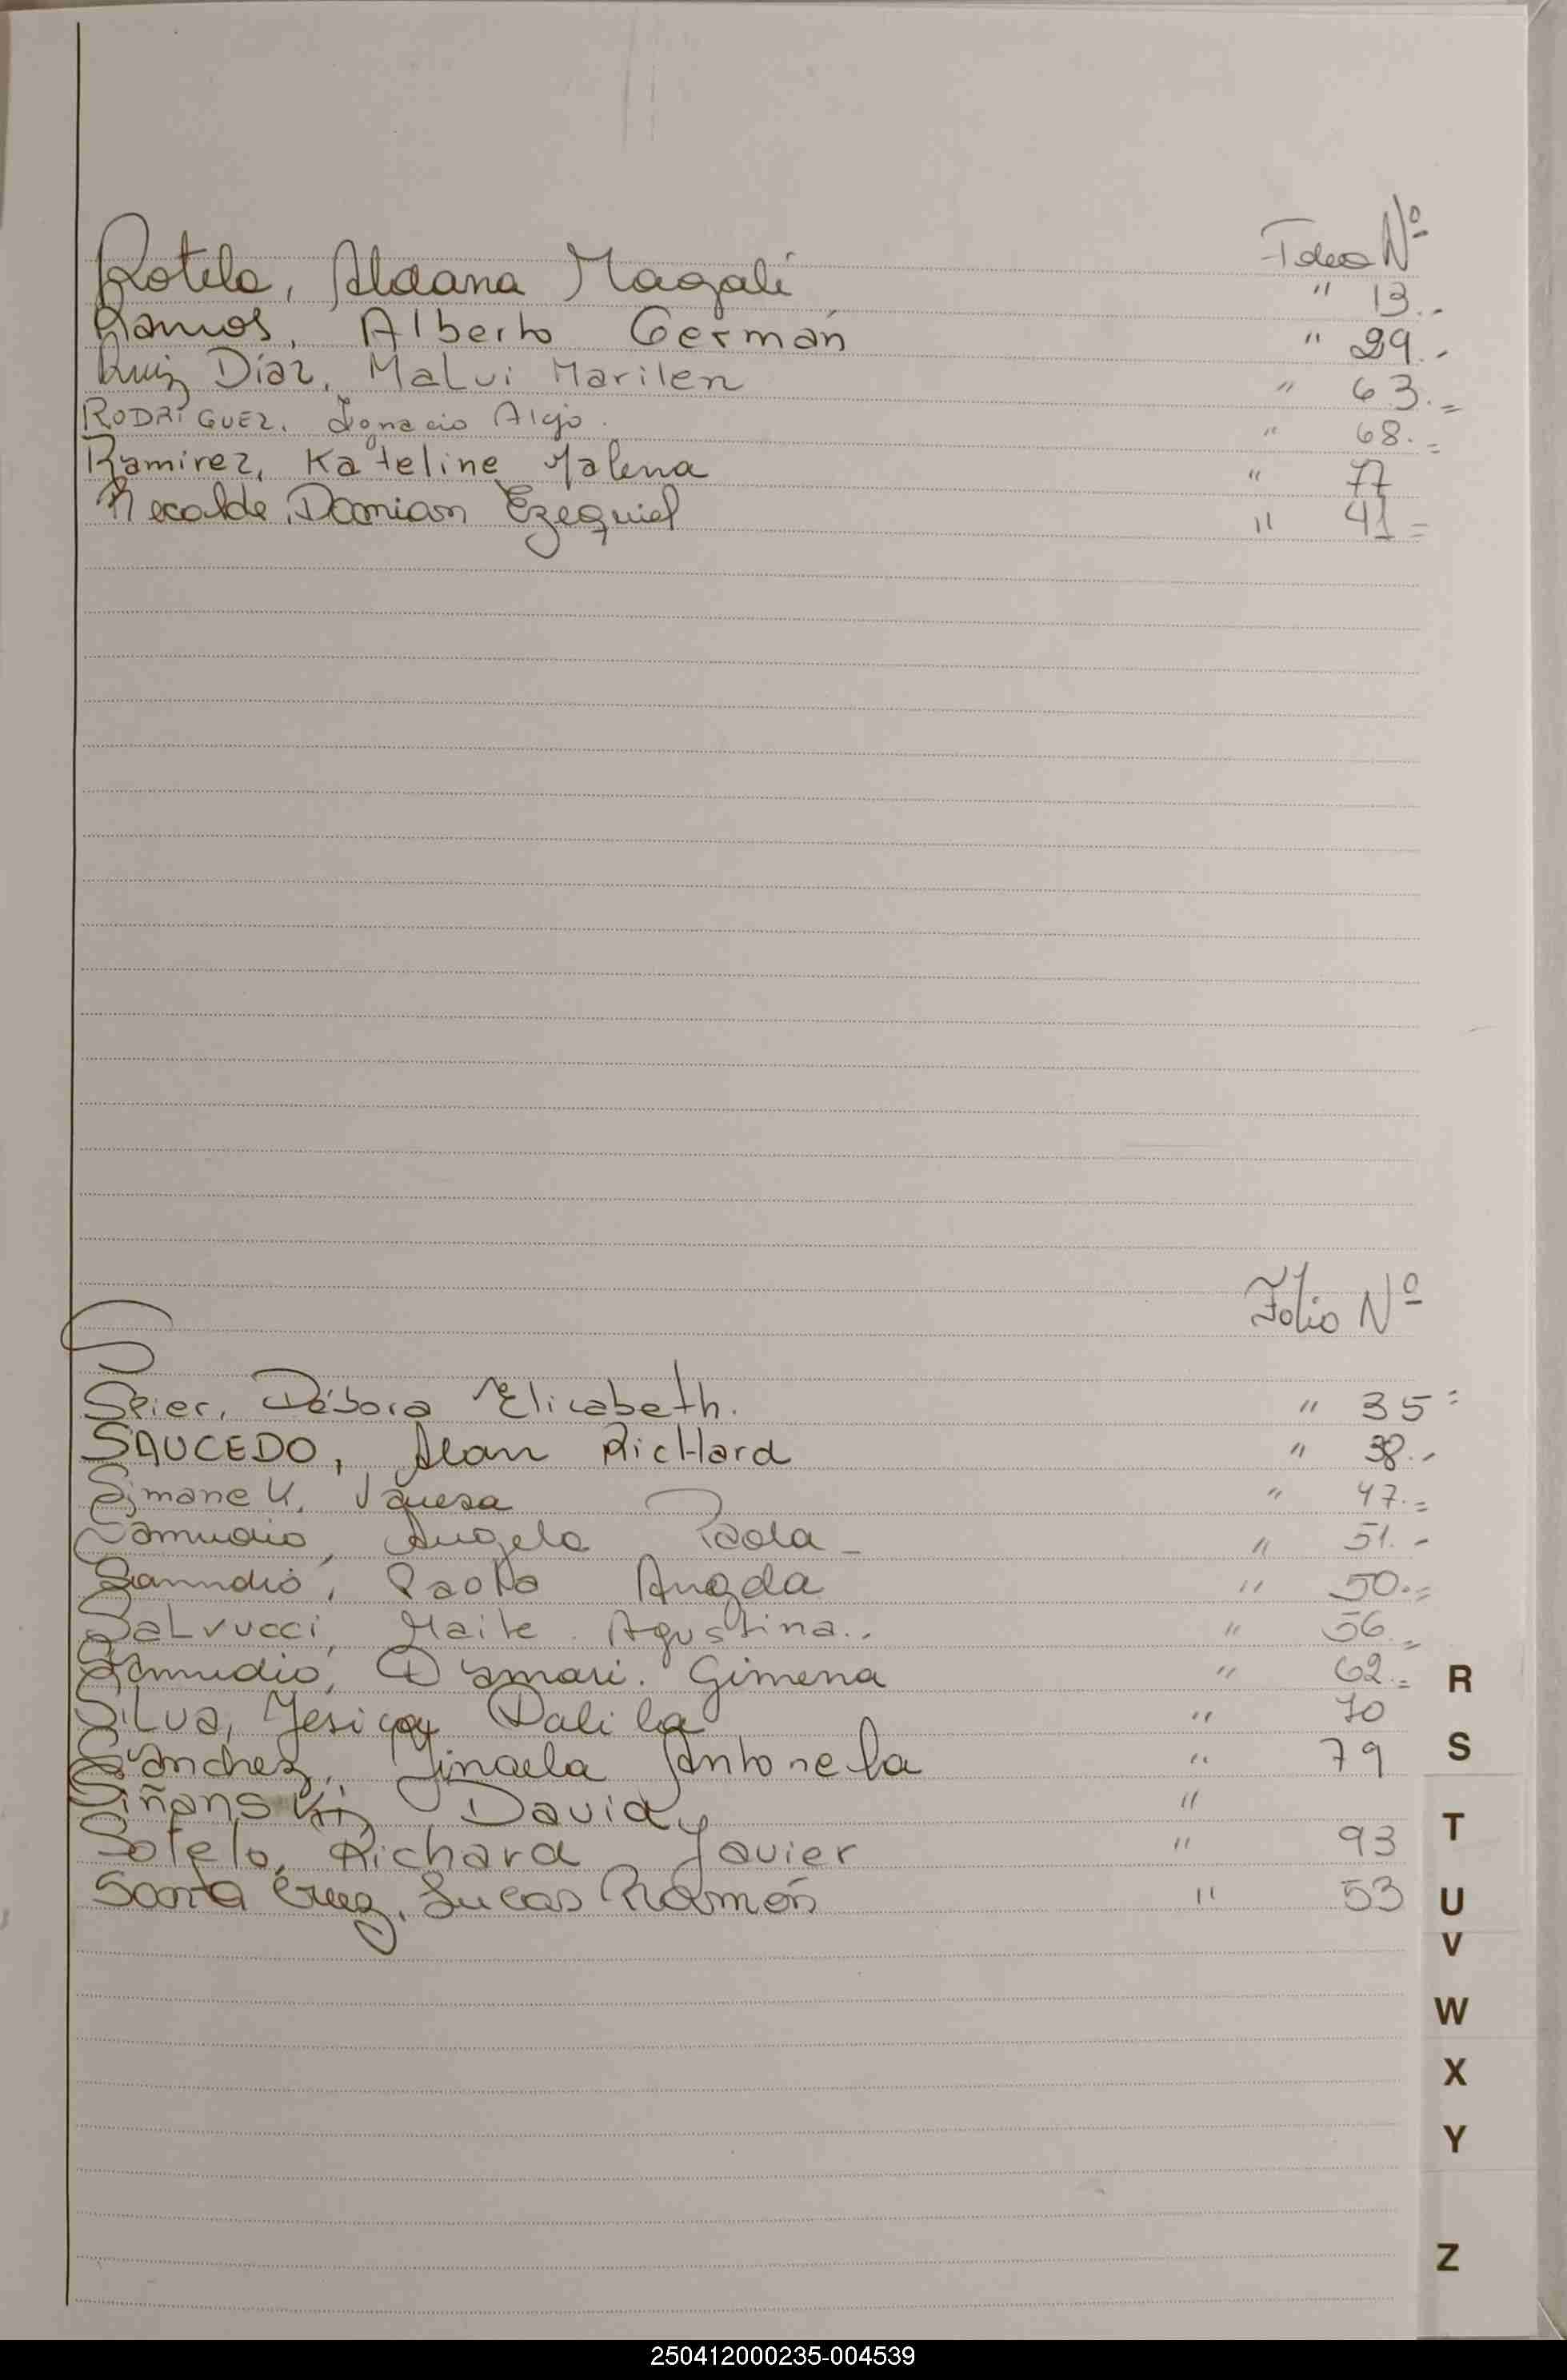 Folio Nº
Rotela, Aldana Magalí " 13.-
Ramos, Alberto Germán " 29.-
Ruiz Díaz, Malvi Marilen " 63.=
RODRÍGUEZ, Ignacio Alejo. " 68.=
Ramirez, Kateline Malena " 77
Recalde, Damian Ezequiel " 41=
Folio Nº
S
Seier, Débora Elizabeth. " 35=
SAUCEDO, Alan RicHard " 38.-
Simane K, Vanesa " 47.=
Samudio, Angela Paola - " 51.-
Samudio, Paola Angela " 50.=
Salvucci, Maite Agustina.. " 56.=
Samudio, Damari. Gimena " 62.=
Silva, Yesica Dalila " 70
Sanchez, Antonela " 79
David "
Sotelo, Richard Javier " 93
Santa Cruz, Lucas Ramón " 53
R
S
T
U
V
W
X
Y
Z
250412000235-004539